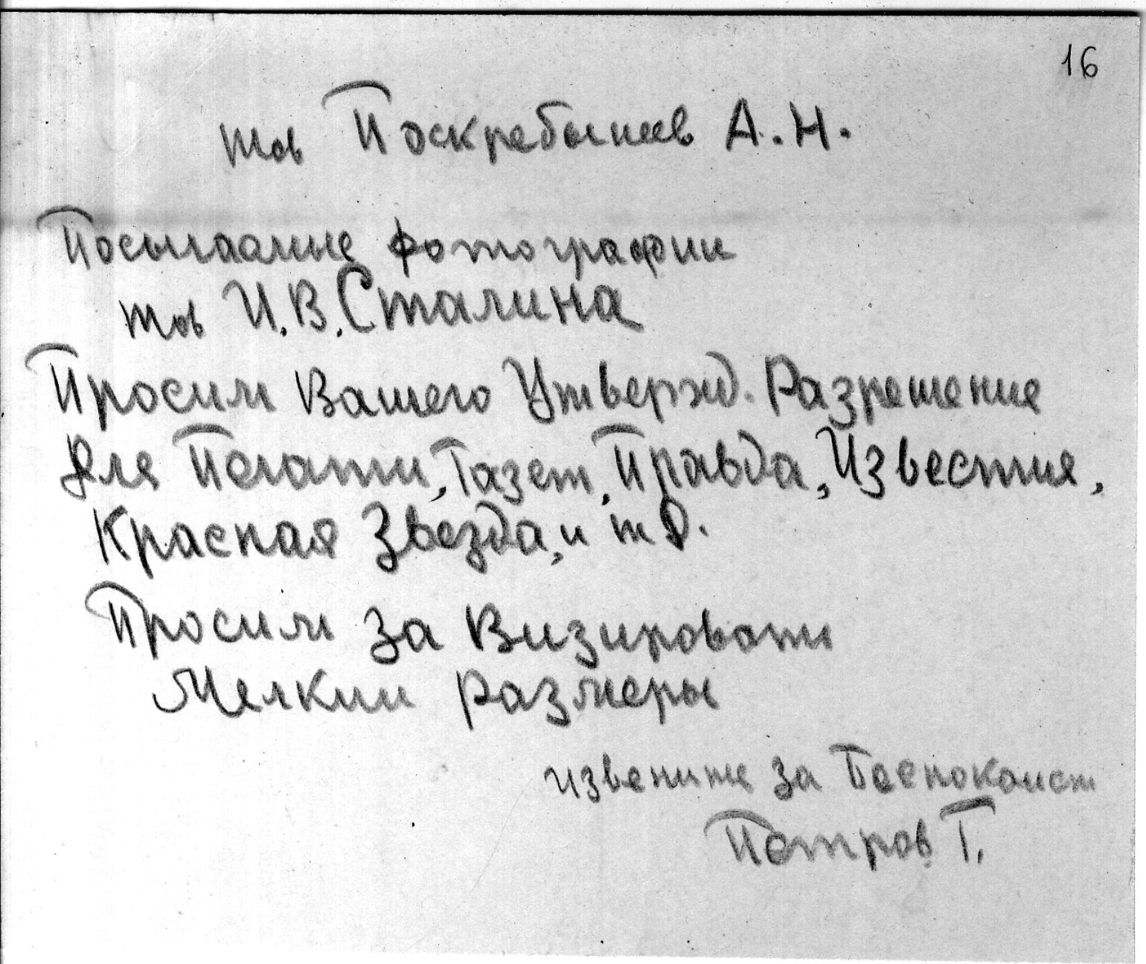 16
тов Поскребышев А.Н.
Посылаемые фотографии
тов И.В.Сталина
Просим Вашего Утвержд. Разрешение
для Печати, Газет, Правда, Известия,
Красная Звезда, и т д.
Просим За Визировати
Мелкии размеры
извените за Беспокоист
Петров Г.